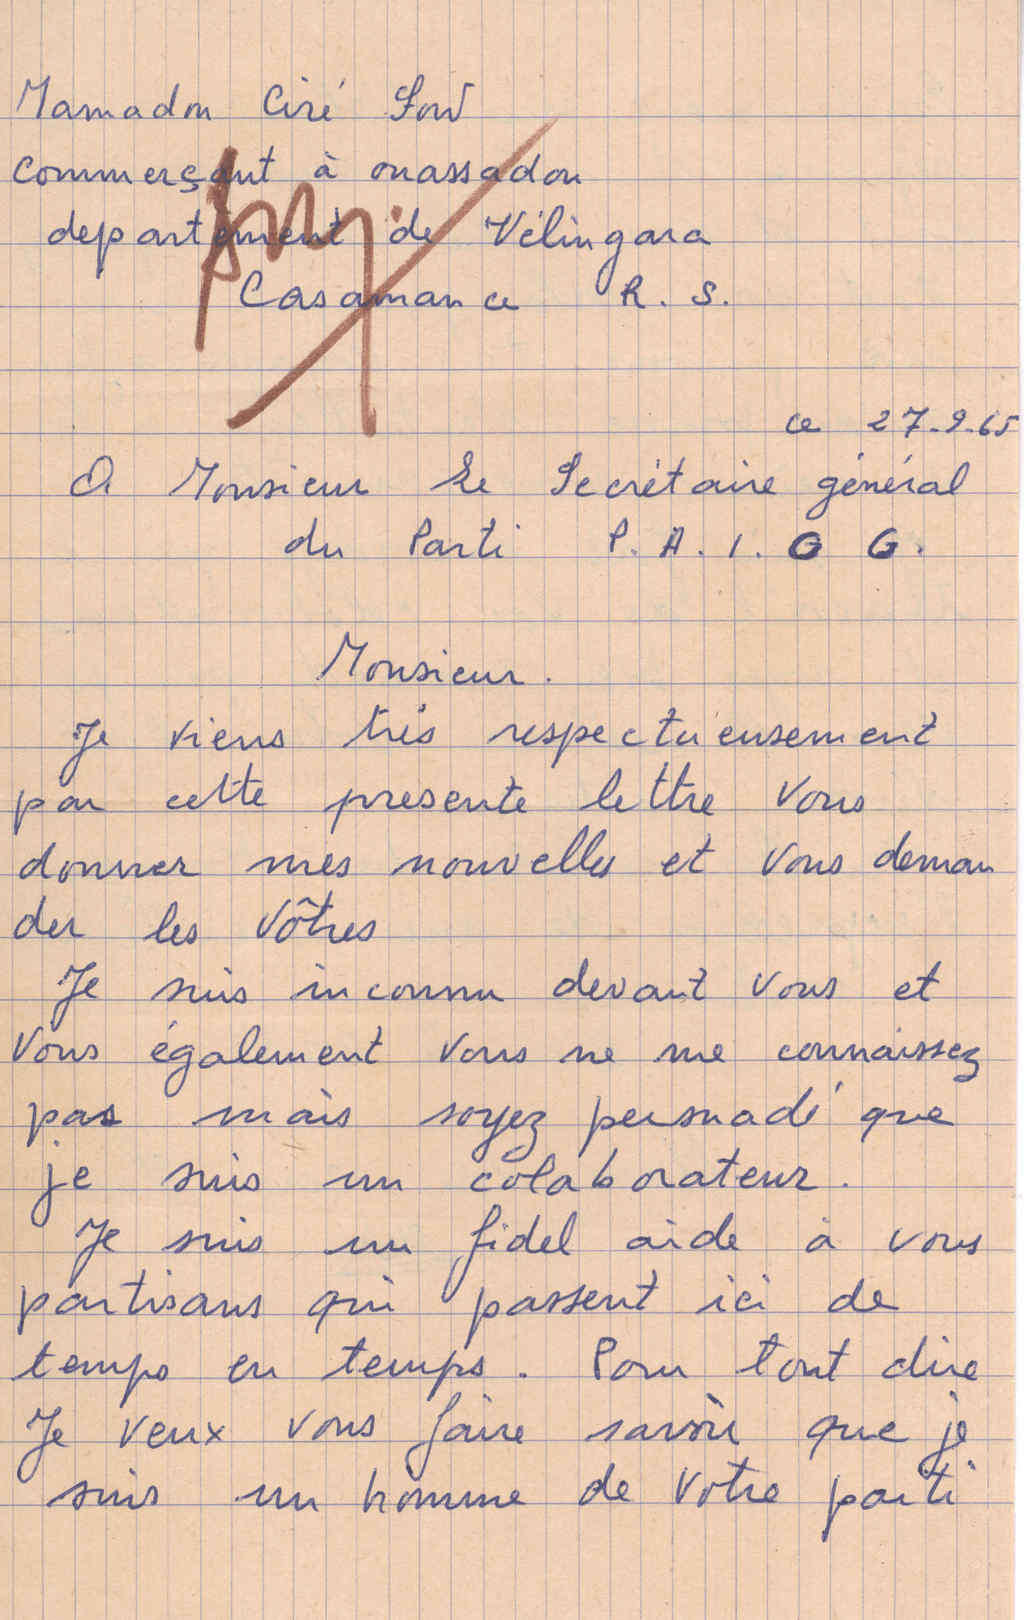 Mamadou Ciré Sow
commerçant à ouassadou
departement de Vélingara
Casamance R. S.
ce 27-9-65
A Monsieur Le Secrétaire général
du Parti P. A. I. G G.
Monsieur.
Je viens très respectueusement
par cette presente lettre Vous
donner mes nouvelles et Vous deman
der les Vôtres
Je suis inconnu devant Vous et
Vous également Vous ne me connaissez
pas mais soyez persuadé que
je suis un colaborateur.
Je suis un fidel aide à vous
partisans qui passent ici de
temps en temps. Pour tout dire
Je veux vous faire savoir que je
suis un homme de Votre parti